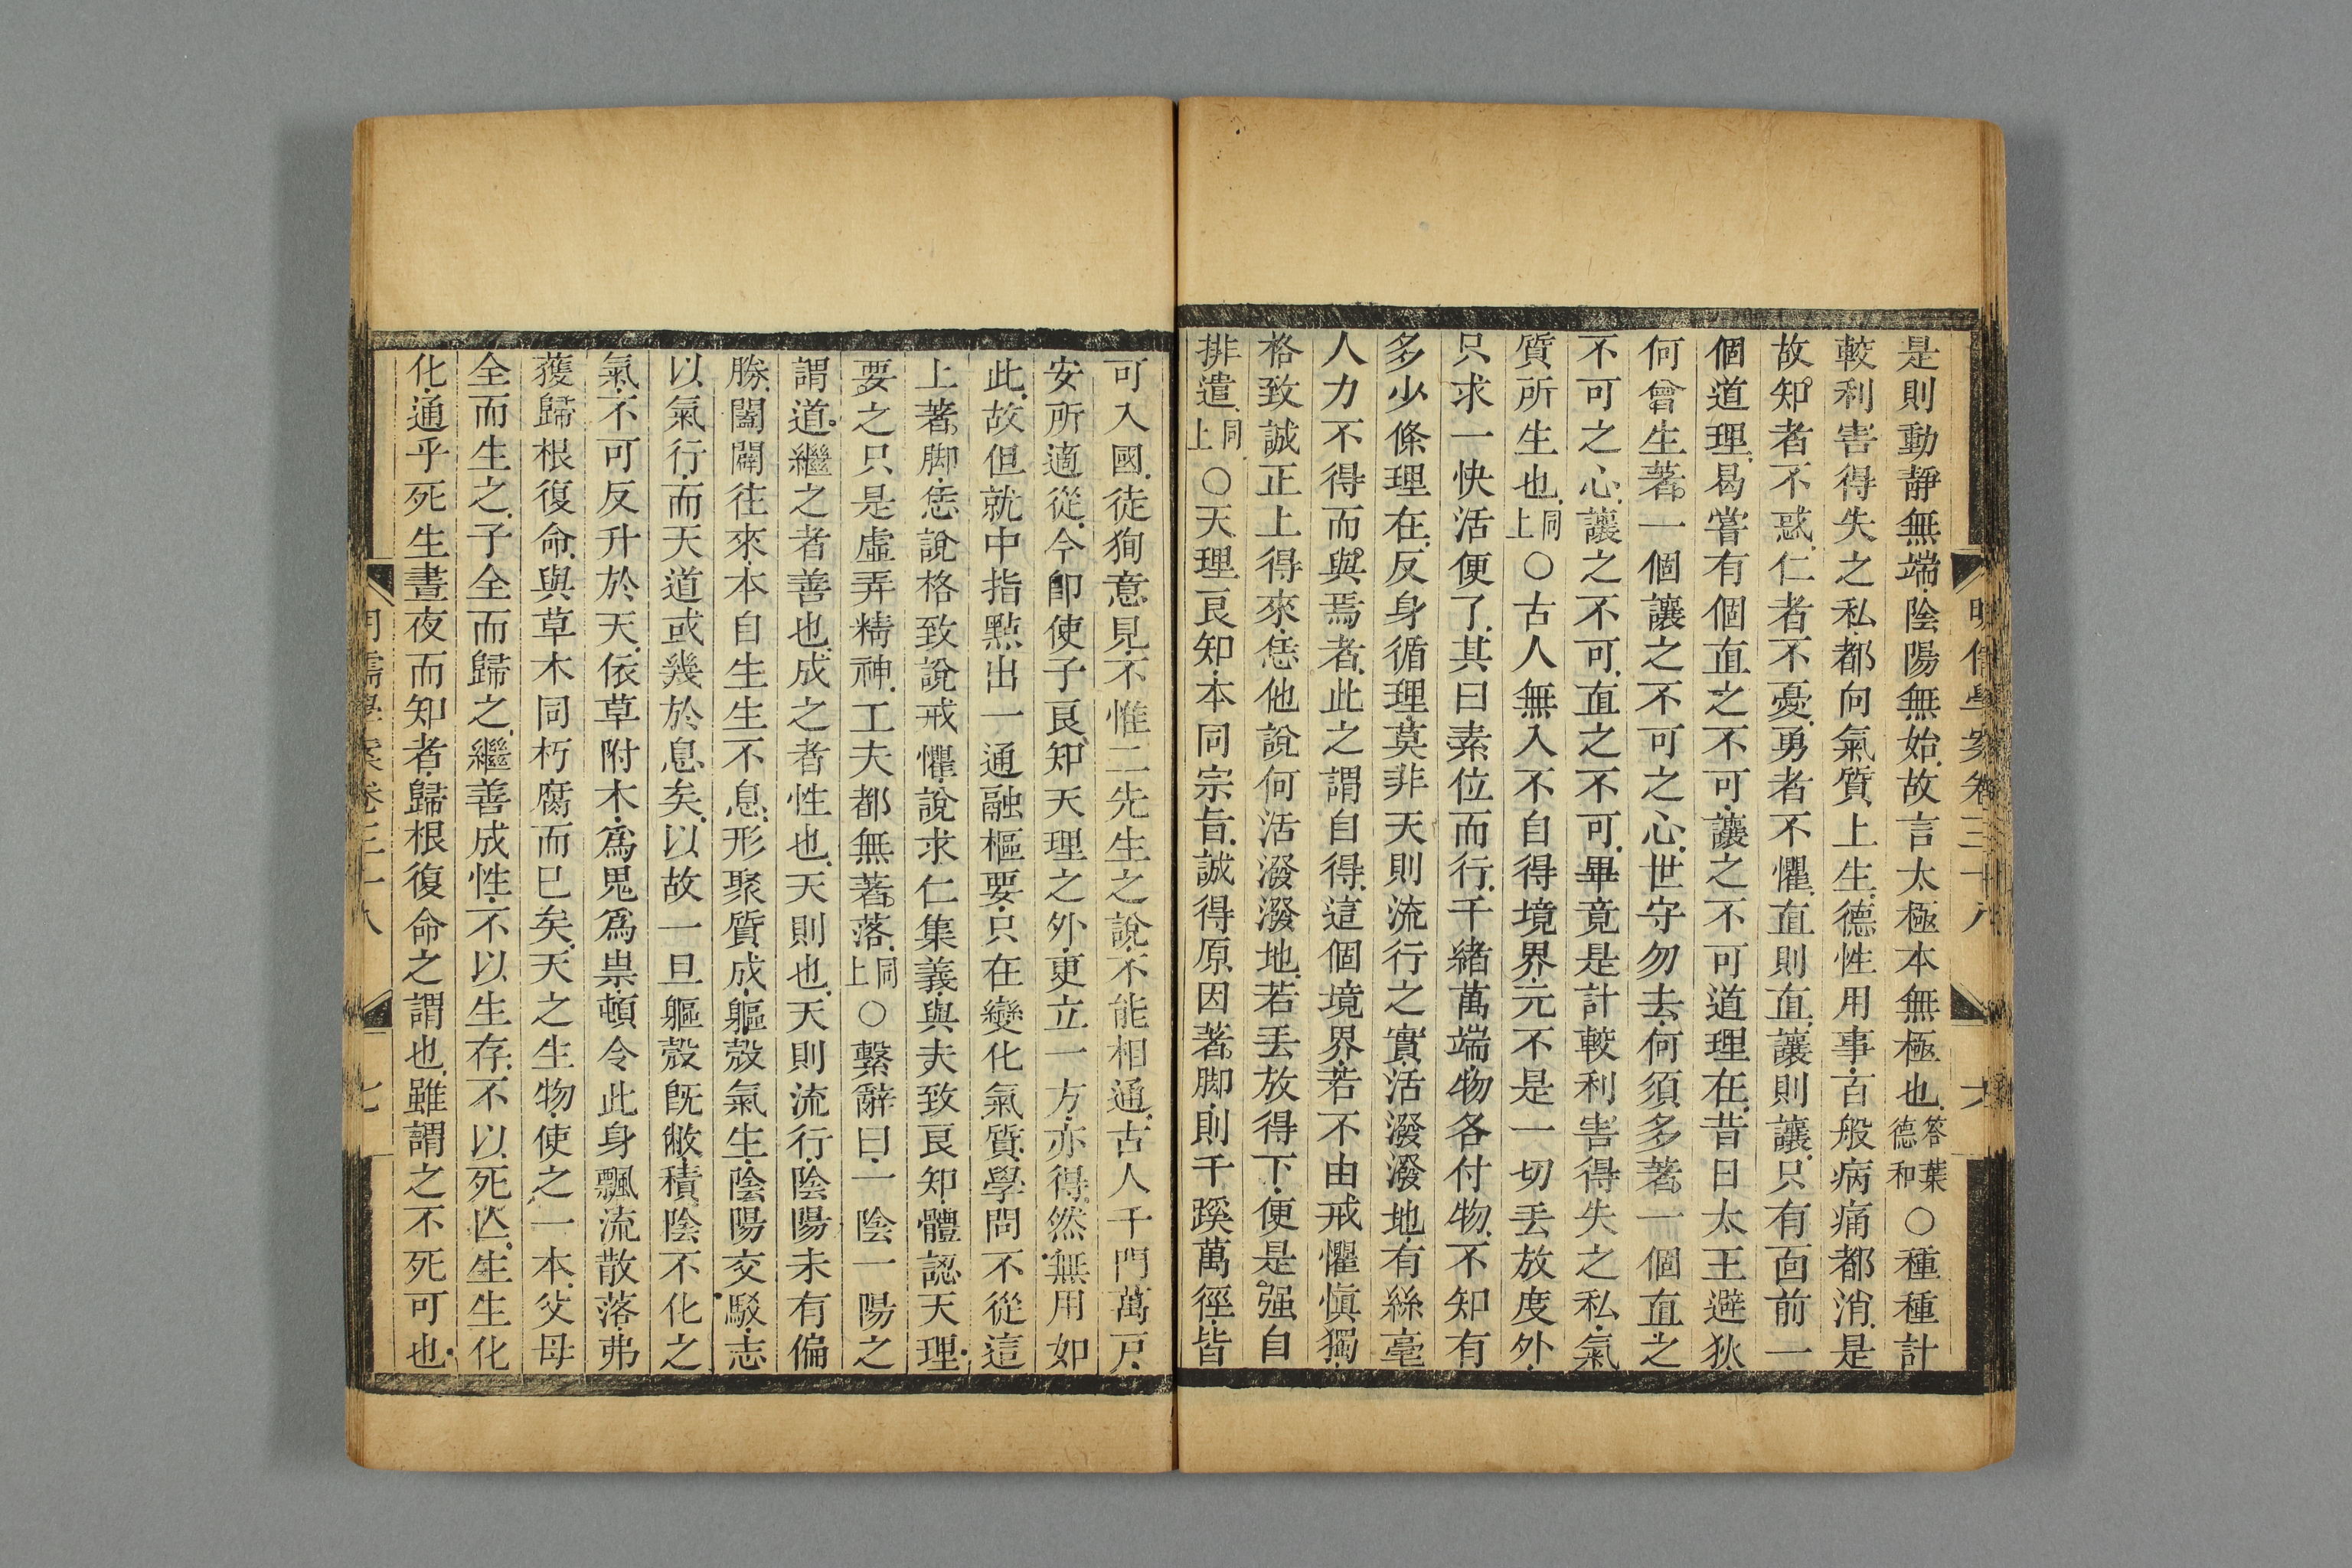 明儒學案卷三十八
六
是則動靜無端陰陽無始故言太極本無極也答葉德和○種種計
較利害得失之私都向氣質上生德性用事百般病痛都消是
故知者不惑仁者不憂勇者不懼直則直讓則讓只有面前一
個道理曷嘗有個直之不可讓之不可道理在昔日太王避狄
何曾生著一個讓之不可之心世守勿去何須多著一個直之
不可之心讓之不可直之不可畢竟是計較利害得失之私氣
質所生也同上○古人無入不自得境界元不是一切丟放度外
只求一快活便了其曰素位而行千緒萬端物各付物不知有
多少條理在反身循理莫非天則流行之實活潑潑地有絲毫
人力不得而與焉者此之謂自得這個境界若不由戒懼慎獨
格致誠正上得來恁他說何活潑潑地若丟放得下便是强自
排遣同上○天理良知本同宗旨誠得原因著脚則千蹊萬徑皆
可入國徒狥意見不惟二先生之說不能相通古人千門萬戸
安所適從今卽使子良知天理之外更立一方亦得然無用如
此故但就中指點出一通融樞要只在變化氣質學問不從這
上著脚恁說格致說戒懼說求仁集義與夫致良知體認天理
要之只是虛弄精神工夫都無著落同上○繫辭曰一陰一陽之
謂道繼之者善也成之者性也天則也天則流行陰陽未有偏
勝闔闢往來本自生生不息形聚質成軀殼氣生陰陽交駁志
以氣行而天道或幾於息矣以故一旦軀殼旣敝積陰不化之
氣不可反升於天依草附木爲鬼爲祟頓令此身飄流散落弗
獲歸根復命與草木同朽腐而已矣天之生物使之一本父母
全而生之子全而歸之繼善成性不以生存不以死亾生生化
化通乎死生晝夜而知者歸根復命之謂也雖謂之不死可也
明儒學案卷三十八
七